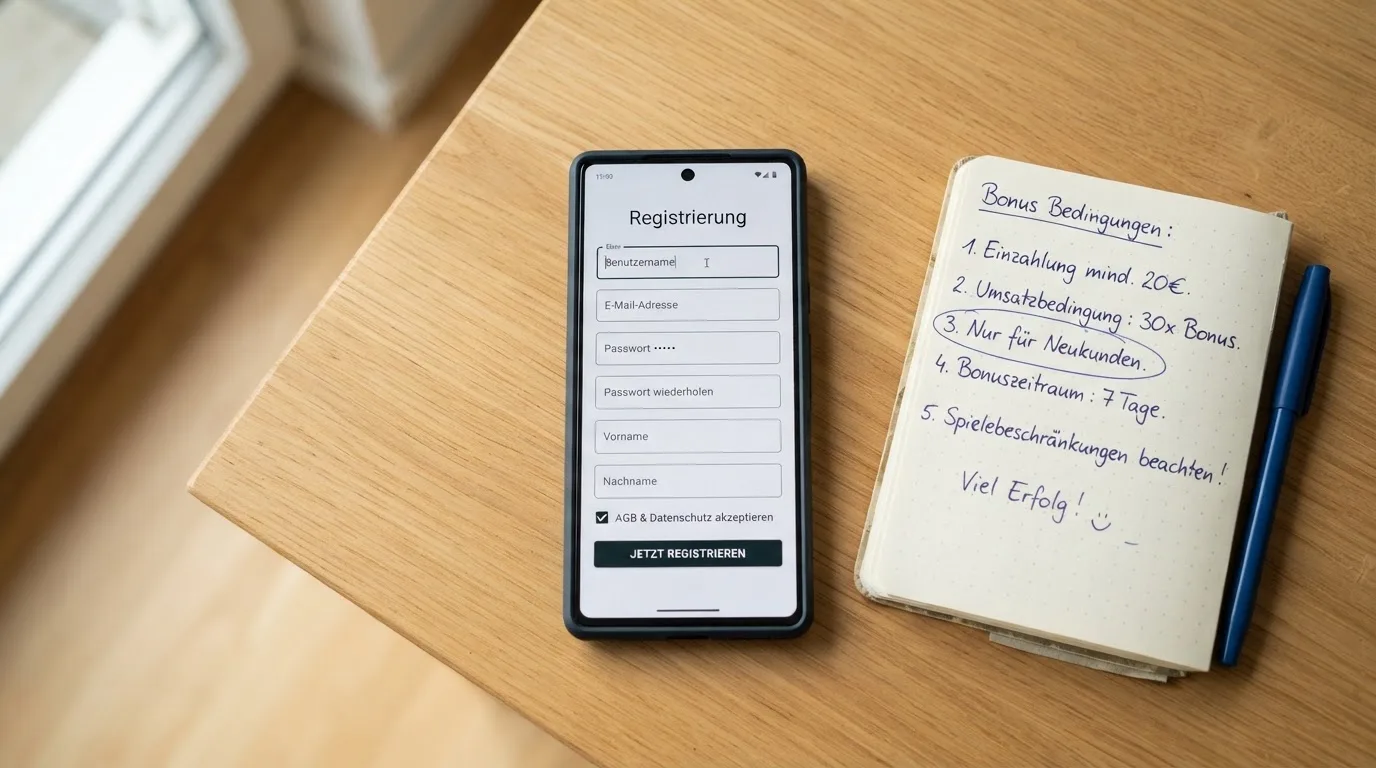 11:00
Registrierung
Benutzername
E-Mail-Adresse
Passwort •••••
Passwort wiederholen
Vorname
Nachname
AGB & Datenschutz akzeptieren
JETZT REGISTRIEREN
Bonus Bedingungen:
1. Einzahlung mind. 20€.
2. Umsatzbedingung: 30x Bonus.
3. Nur für Neukunden.
4. Bonuszeitraum: 7 Tage.
5. Spielebeschränkungen beachten!
Viel Erfolg!